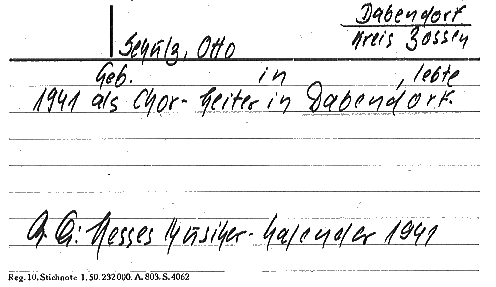 Dabendorf
Kreis Zossen
Schulz, Otto
Geb. in , lebte
1941 als Chor-Leiter in Dabendorf.
Hesses Musiker-Kalender 1941
Reg. 10, Stichnote 1, 50. 232000. A. 803. S. 4062